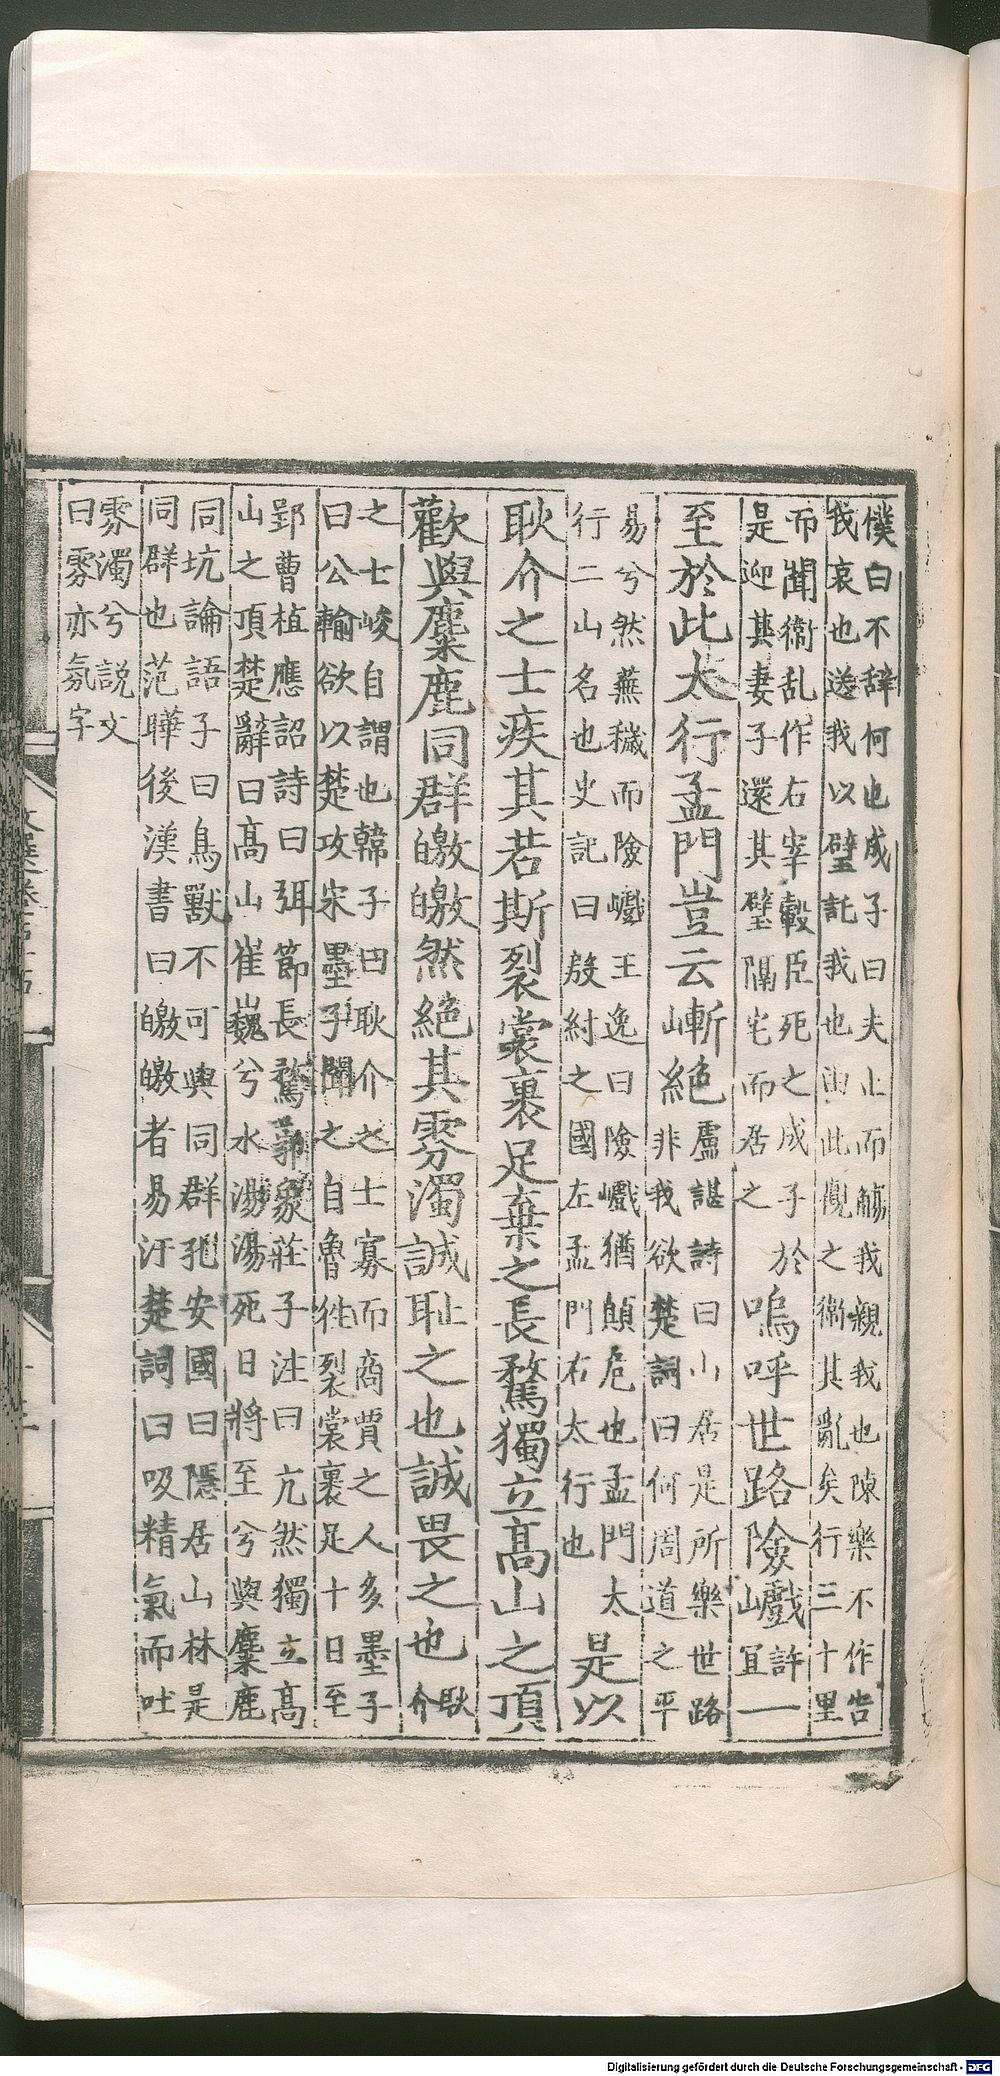 僕曰不辭何也成子曰夫止而觴我親我也陳樂不作告
我哀也送我以璧託我也由此觀之衞其亂矣行三十里
而聞衞乱作右宰穀臣死之成子於
是迎其妻子還其璧隔宅而居之
嗚呼世路險巇一
許
冝
至於此太行孟門豈云嶄絕
盧諶詩曰山居是所樂世路
非我欲楚詞曰何周道之平
易兮然蕪穢而險巇王逸曰險巇猶顛危也孟門太
行二山名也史記曰殷紂之國左孟門右太行也
是以
耿介之士疾其若斯裂裳裹足棄之長騖獨立高山之頂
歡與麋鹿同群皦皦然絕其雰濁誠耻之也誠畏之也
耿
介
之士峻自謂也韓子曰耿介之士寡而商賈之人多墨子
曰公輸欲以楚攻宋墨子聞之自魯徃裂裳裹足十日至
郢曹植應詔詩曰弭節長騖郭象莊子注曰亢然獨立高
山之頂楚辭曰高山崔巍兮水湯湯死日將至兮與麋鹿
同坑論語子曰鳥獸不可與同群孔安國曰隱居山林是
同群也范曄後漢書曰皦皦者易汙楚詞曰吸精氣而吐
雰濁兮説文
曰雰亦氛字
Digitalisierung gefördert durch die Deutsche Forschungsgemeinschaft - DFG